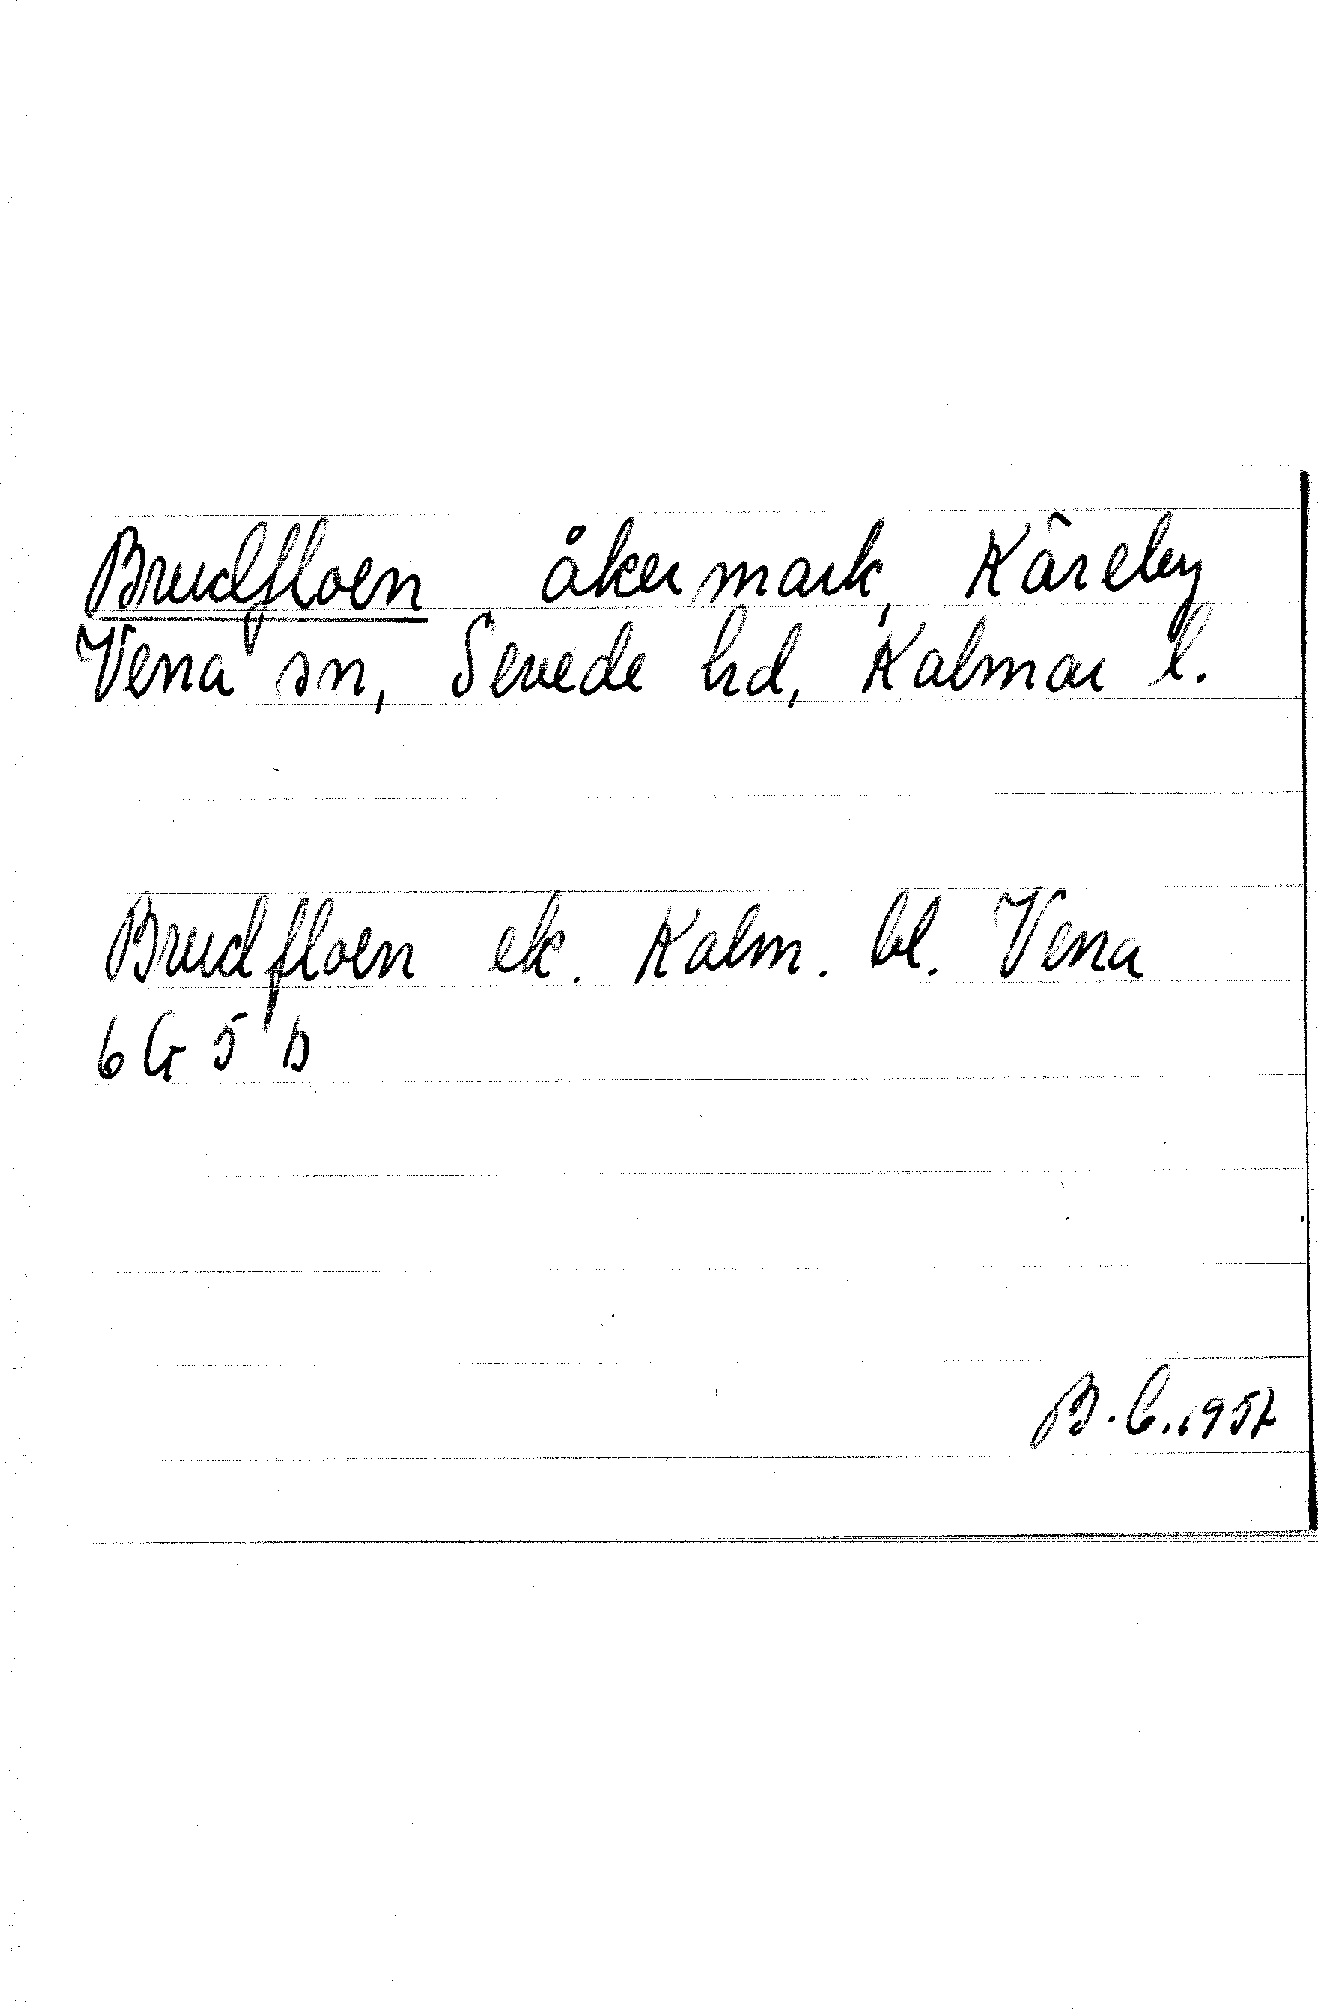 Brudfloen åkermark, Kåreby
Vena sn, Sevede hd, Kalmar l.
Brudfloen ek. Kalm. bl. Vena
6 G 5 b
B. C. 1957